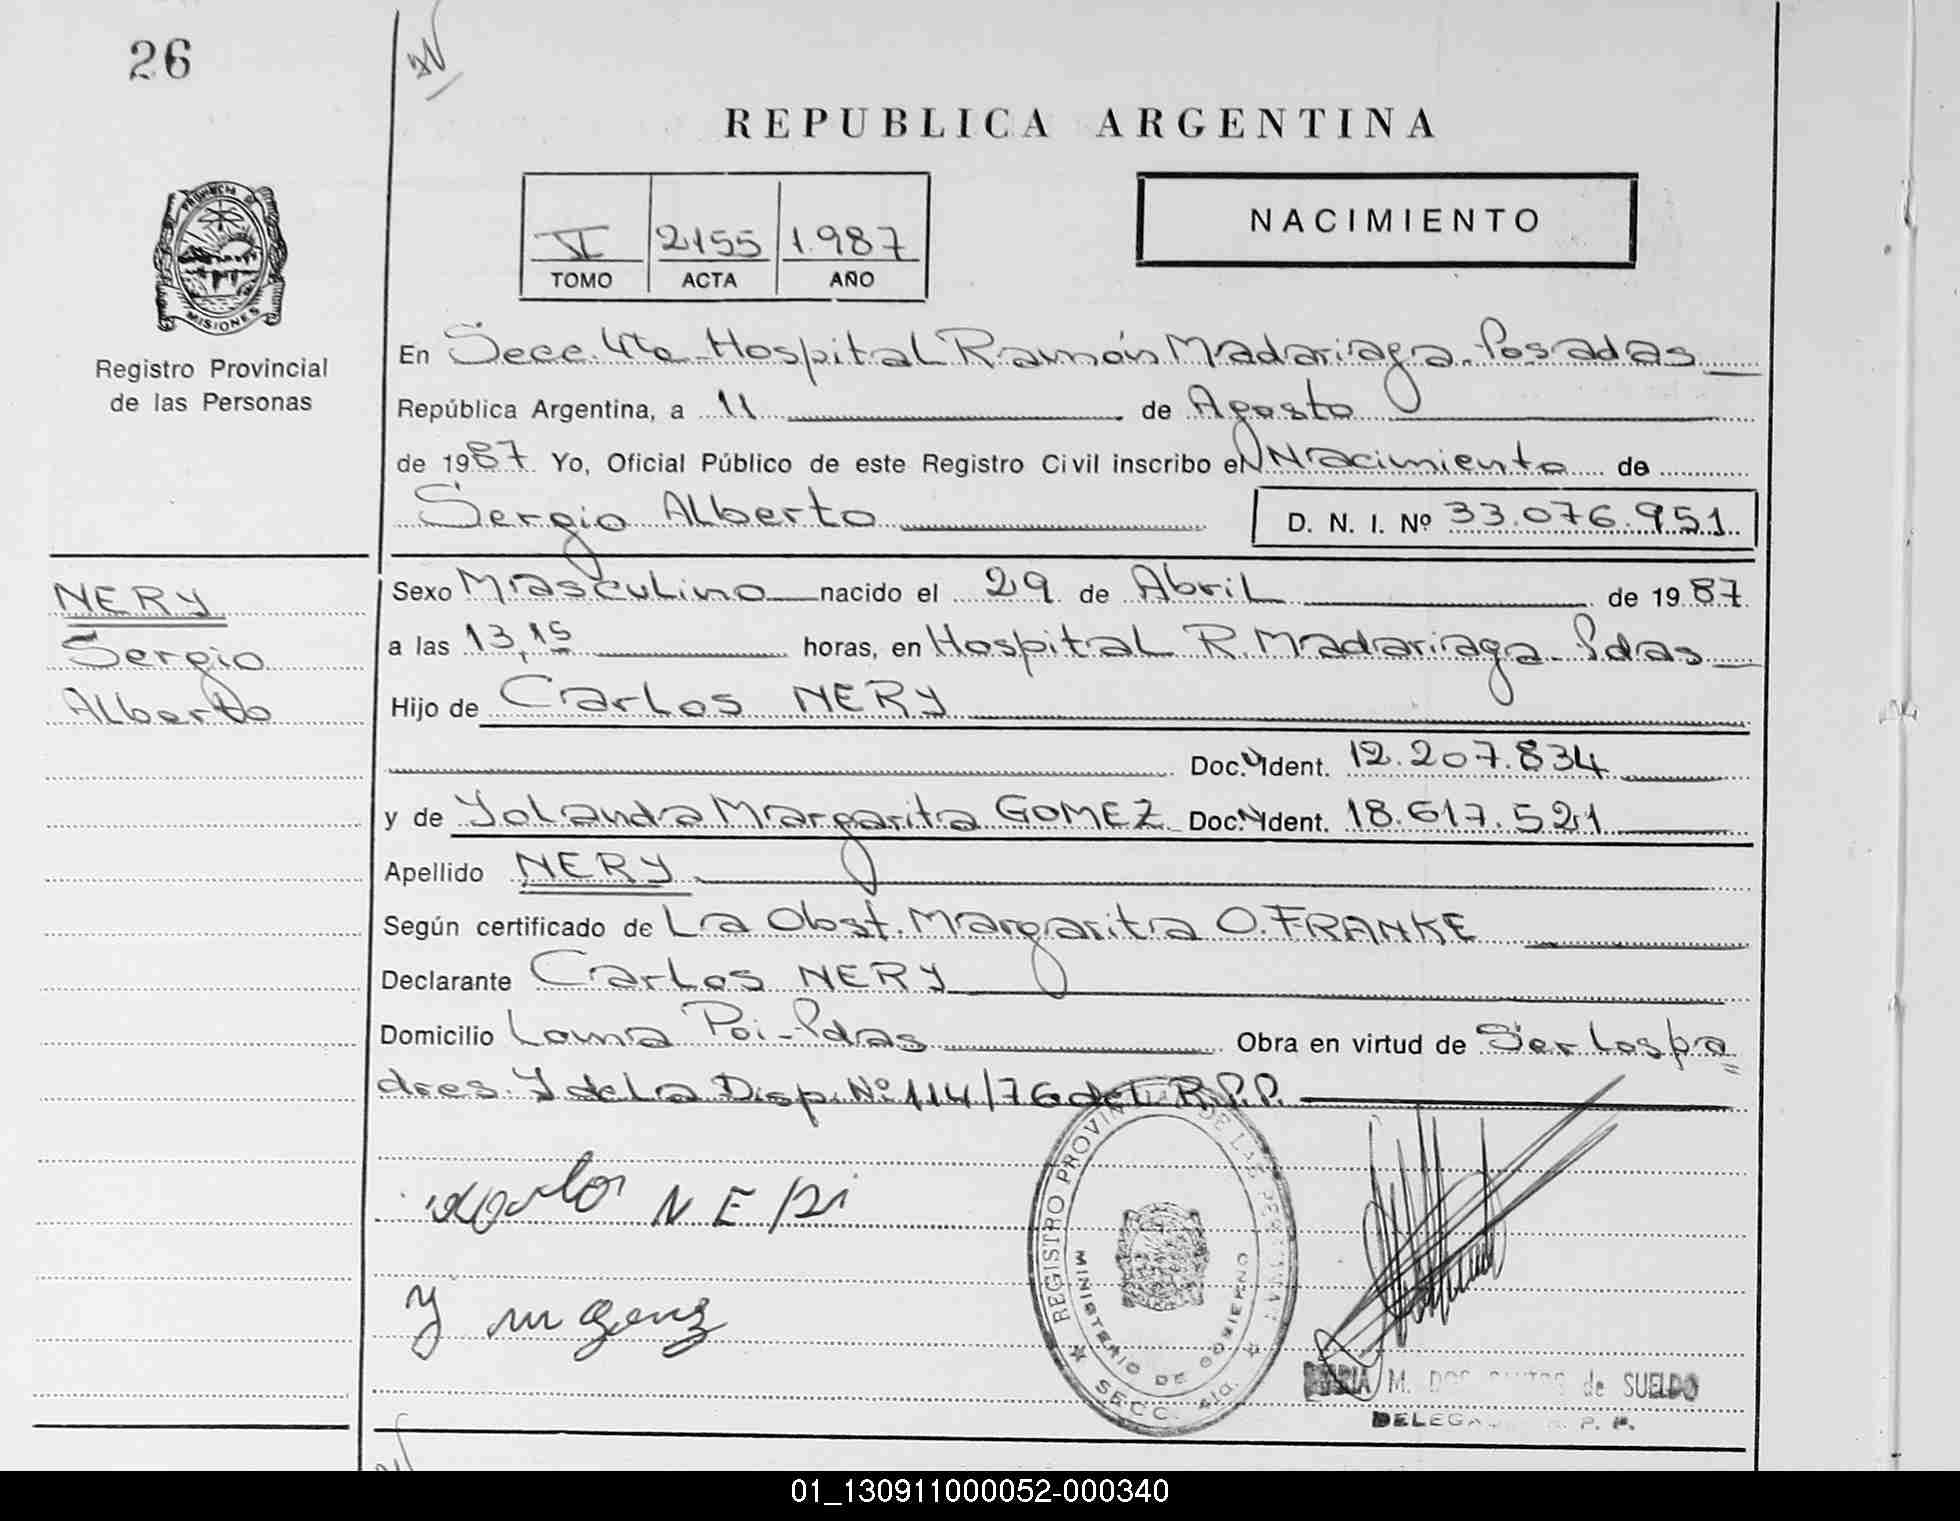 26
REPUBLICA ARGENTINA
NACIMIENTO
VI 2155 1.987
TOMO ACTA AÑO
PROVINCIA DE
MISIONES
Registro Provincial
de las Personas
En Secc. 4ta Hospital Ramón Madariaga - Posadas
República Argentina, a 11 de Agosto
de 1987 Yo, Oficial Público de este Registro Civil inscribo el Nacimiento de
Sergio Alberto D. N. I. Nº 33.076.951
NERY
Sergio
Alberto
Sexo Masculino nacido el 29 de Abril de 1987
a las 13,15 horas, en Hospital R. Madariaga - Pdas
Hijo de Carlos NERY
Doc. Ident. 12.207.834
y de Yolanda Margarita GOMEZ Doc. Ident. 18.617.521
Apellido NERY
Según certificado de La Obst. Margarita O. FRANKE
Declarante Carlos NERY
Domicilio Loma Poi - Pdas Obra en virtud de Ser los pa
dres y de la Disp. Nº 114/76 del R.P.P.
NERi
REGISTRO PROVINCIAL DE LAS PERSONAS
MINISTERIO DE GOBIERNO
SECC. 4ta.
MARIA M. DOS SANTOS de SUELDO
R. P. P.
01_130911000052-000340